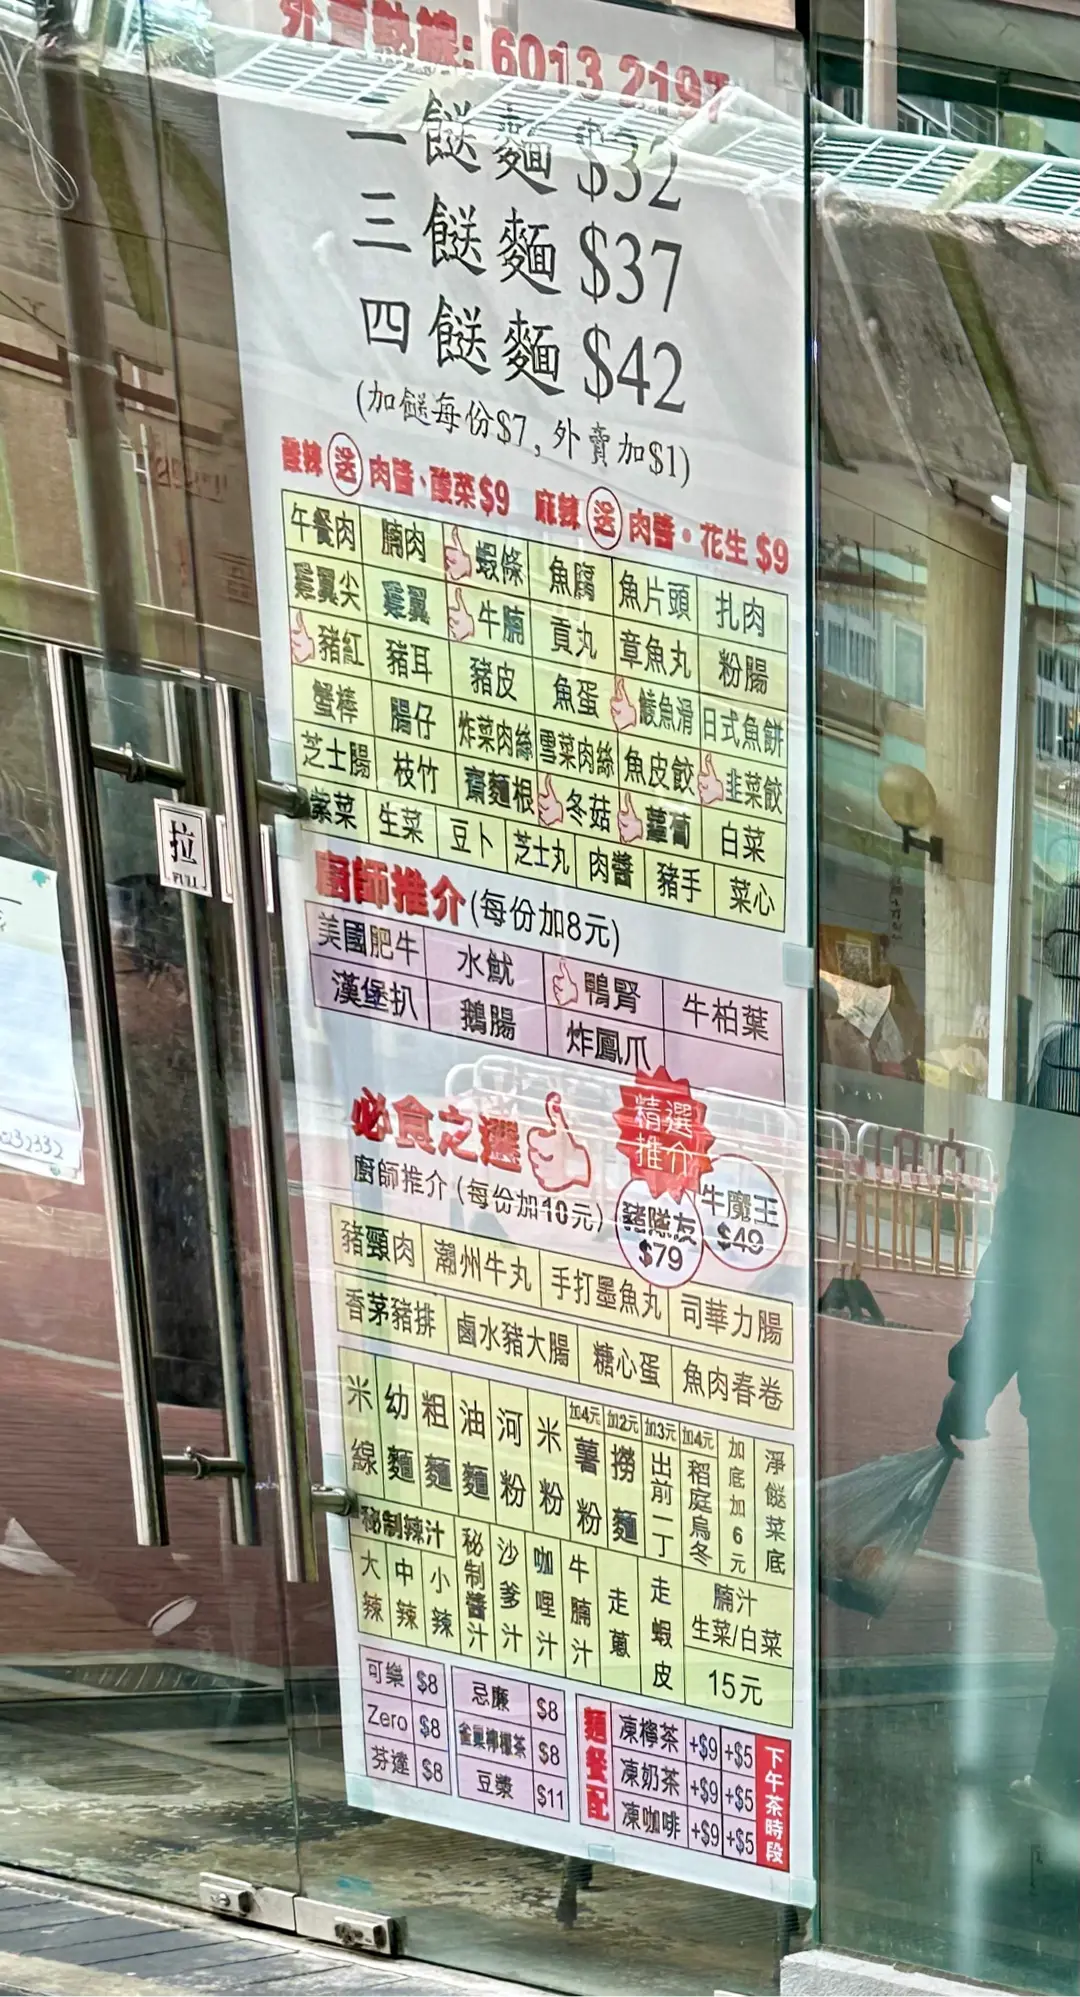 外賣熱線: 6013 2197
餸麵 $32
三餸麵 $37
四餸麵 $42
(加餸每份$7, 外賣加$1)
酸辣 送 肉醬、酸菜 $9 麻辣 送 肉醬・花生 $9
午餐肉 腩肉 蝦條 魚腐 魚片頭 扎肉
雞翼尖 雞翼 牛腩 貢丸 章魚丸 粉腸
豬紅 豬耳 豬皮 魚蛋 鯪魚滑 日式魚餅
蟹棒 腸仔 炸菜肉絲 雪菜肉絲 魚皮餃 韭菜餃
芝士腸 枝竹 齋麵根 冬菇 蘿蔔 白菜
紫菜 生菜 豆卜 芝士丸 肉醬 豬手 菜心
廚師推介 (每份加8元)
美國肥牛 水魷 鴨腎 牛柏葉
漢堡扒 鵝腸 炸鳳爪
必食之選
精選推介
廚師推介 (每份加10元)
豬隊友 $79
牛魔王 $49
豬頸肉 潮州牛丸 手打墨魚丸 司華力腸
香茅豬排 鹵水豬大腸 糖心蛋 魚肉春卷
米線 幼麵 粗麵 油麵 河粉 米粉 加4元 薯粉 加2元 撈麵 加3元 出前一丁 加4元 稻庭烏冬 加底加6元 淨餸菜底
秘制辣汁
大辣 中辣 小辣 秘制醬汁 沙爹汁 咖哩汁 牛腩汁 走蔥 走蝦皮 腩汁
生菜/白菜
15元
可樂 $8 忌廉 $8
Zero $8 雀巢檸檬茶 $8
芬達 $8 豆漿 $11
麵餐配
凍檸茶 +$9 +$5
凍奶茶 +$9 +$5
凍咖啡 +$9 +$5
下午茶時段
拉
PULL